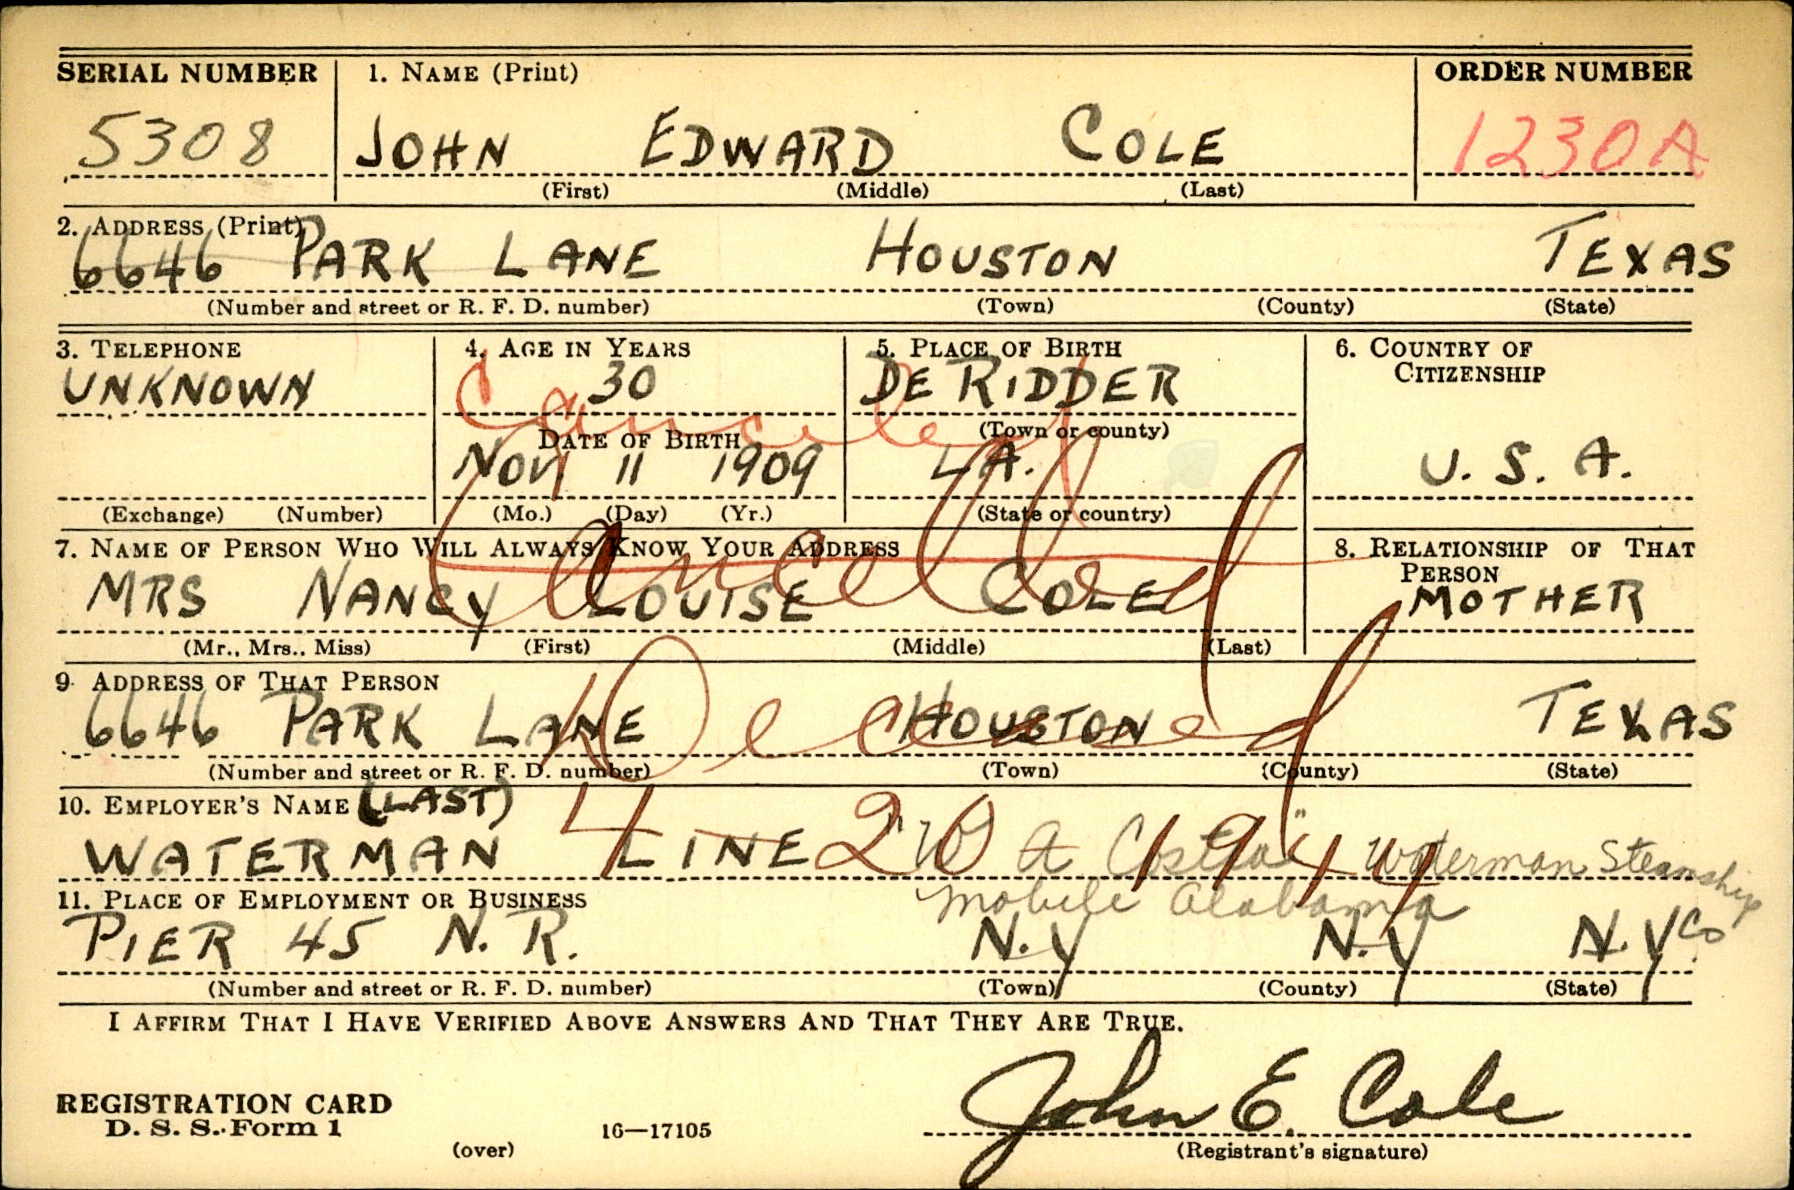 SERIAL NUMBER 1. NAME (Print) ORDER NUMBER
5308 JOHN EDWARD COLE 1230A
(First) (Middle) (Last)
2. ADDRESS (Print)
6646 PARK LANE HOUSTON TEXAS
(Number and street or R. F. D. number) (Town) (County) (State)
3. TELEPHONE 4. AGE IN YEARS 5. PLACE OF BIRTH 6. COUNTRY OF
CITIZENSHIP
UNKNOWN 30 DE RIDDER
Canceled
DATE OF BIRTH (Town or county)
NOV. 11 1909 LA. U. S. A.
(Exchange) (Number) (Mo.) (Day) (Yr.) (State or country)
Cancelled
7. NAME OF PERSON WHO WILL ALWAYS KNOW YOUR ADDRESS 8. RELATIONSHIP OF THAT
PERSON
MRS NANCY LOUISE COLE MOTHER
(Mr., Mrs., Miss) (First) (Middle) (Last)
9. ADDRESS OF THAT PERSON
6646 PARK LANE HOUSTON TEXAS
Deceased
(Number and street or R. F. D. number) (Town) (County) (State)
10. EMPLOYER'S NAME (LAST)
4 - 20 - 1944
WATERMAN LINE "W A Waterman Steamship
Co
Mobile Alabama
11. PLACE OF EMPLOYMENT OR BUSINESS
PIER 45 N. R. N.Y N.Y N.Y
(Number and street or R. F. D. number) (Town) (County) (State)
I AFFIRM THAT I HAVE VERIFIED ABOVE ANSWERS AND THAT THEY ARE TRUE.
John E. Cole
REGISTRATION CARD
D. S. S. Form 1 16—17105
(over) (Registrant's signature)